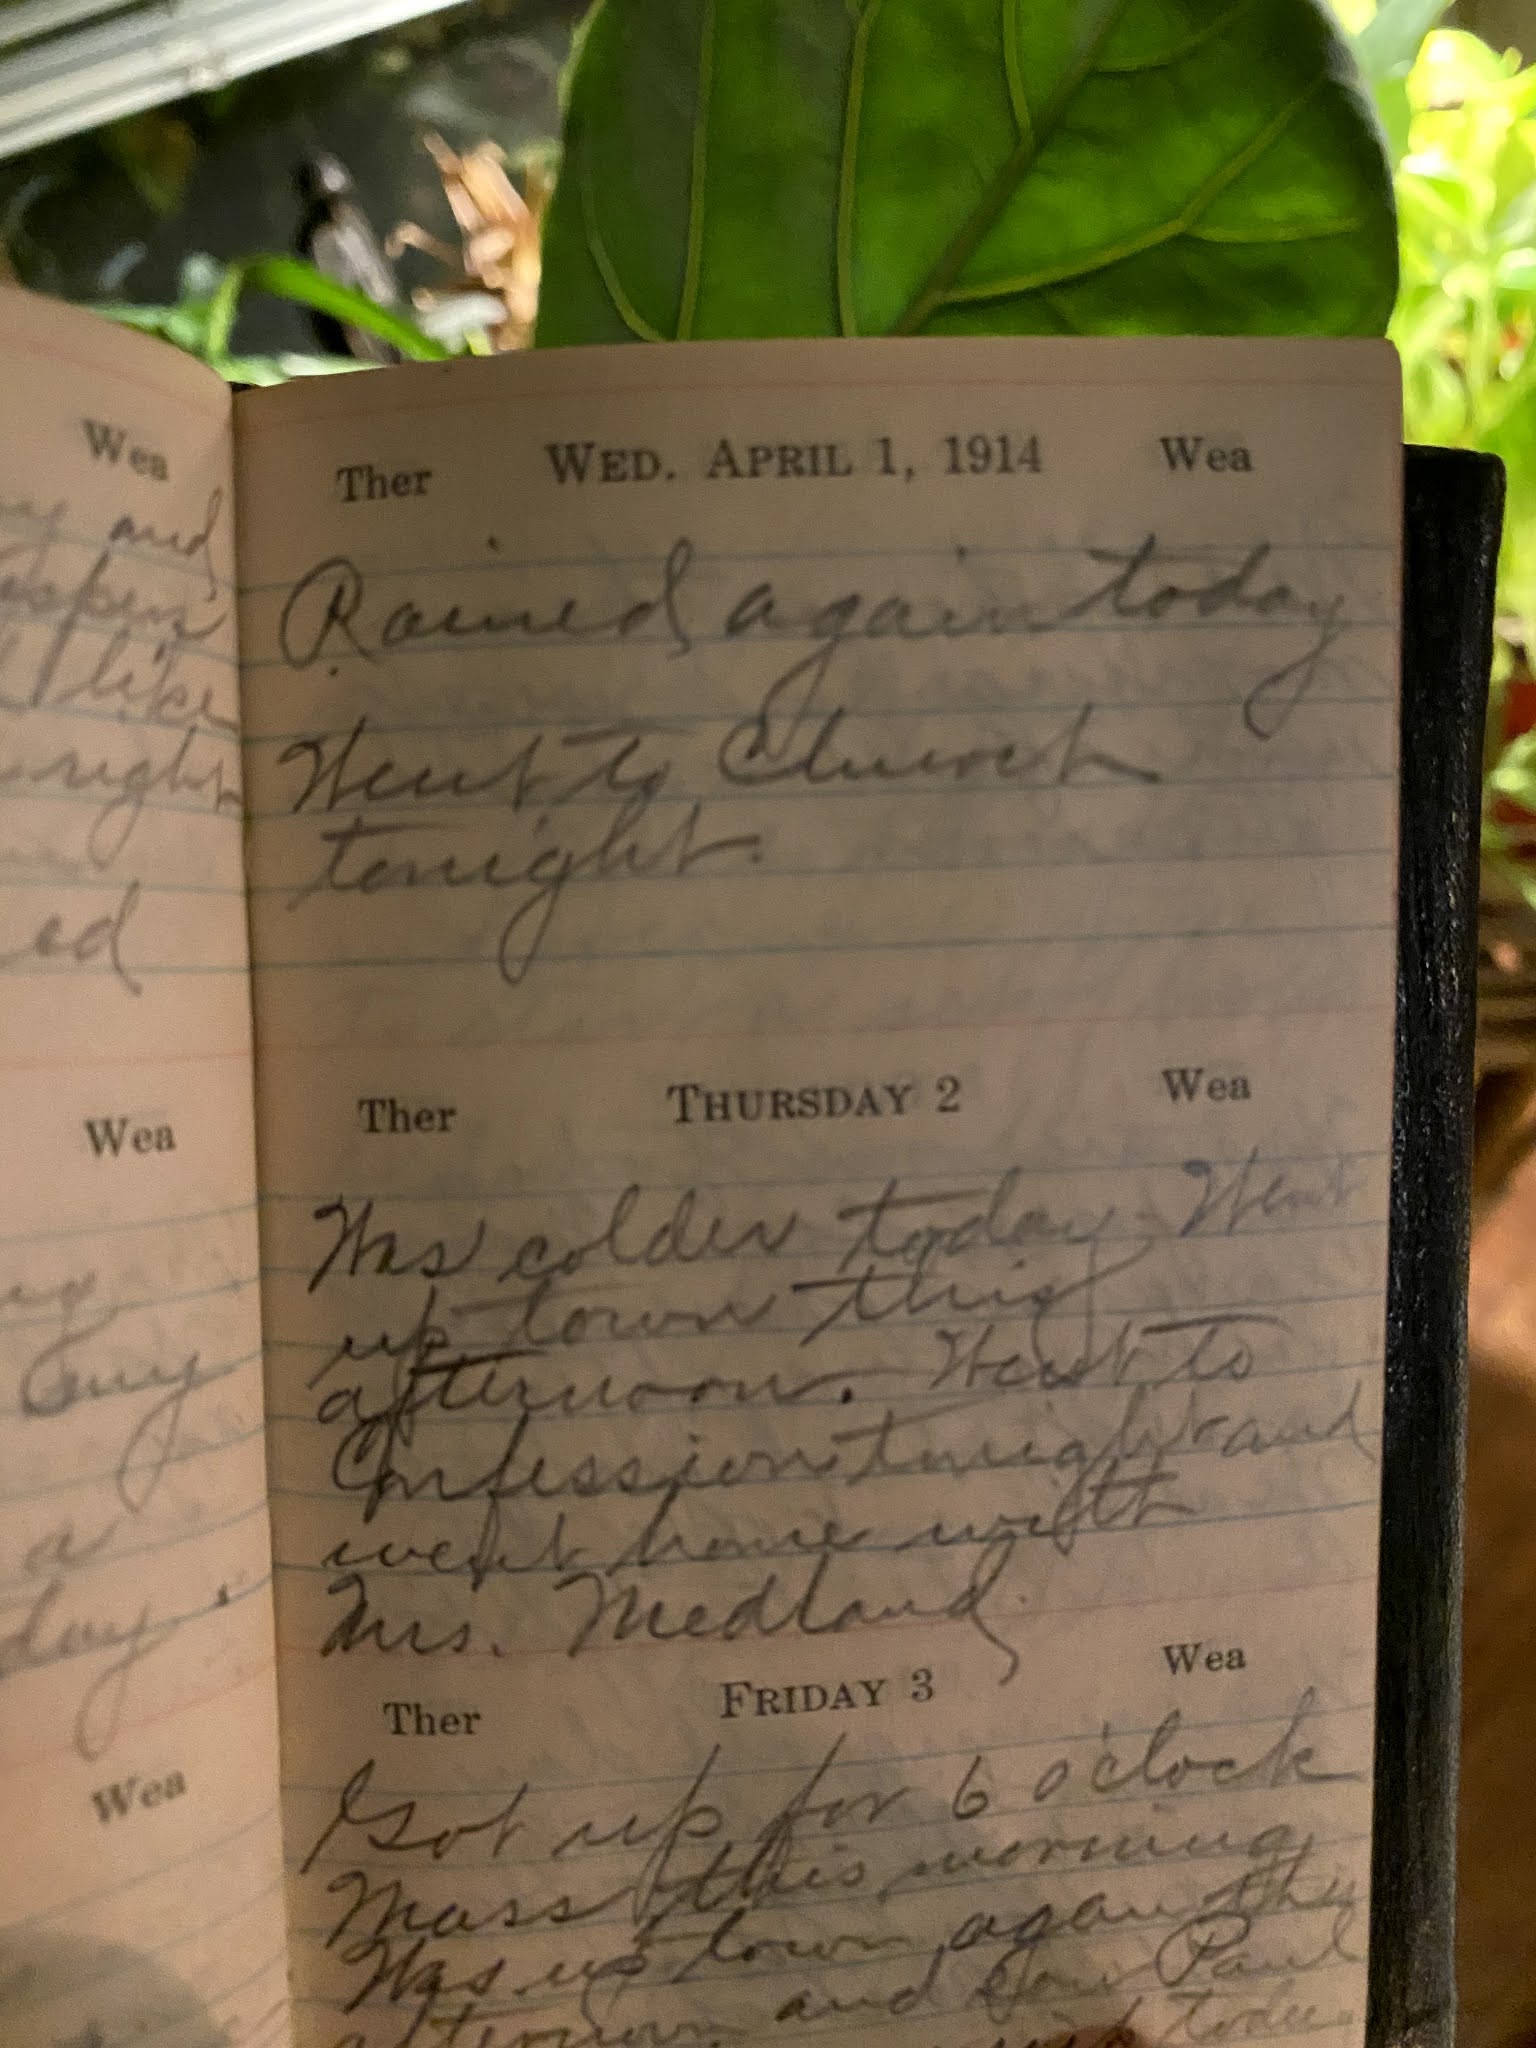 Wea
and
like
right
ed
Wea
a
day.
Wea
Ther WED. APRIL 1, 1914 Wea
Rained again today
Went to Church
tonight.
Ther THURSDAY 2 Wea
Was colder today. Went
up town this
afternoon. Went to
Confession tonight and
went home with
Mrs. Medland.
Ther FRIDAY 3 Wea
Got up for 6 o'clock
Mass this morning
Was up town again this
afternoon and saw Paul